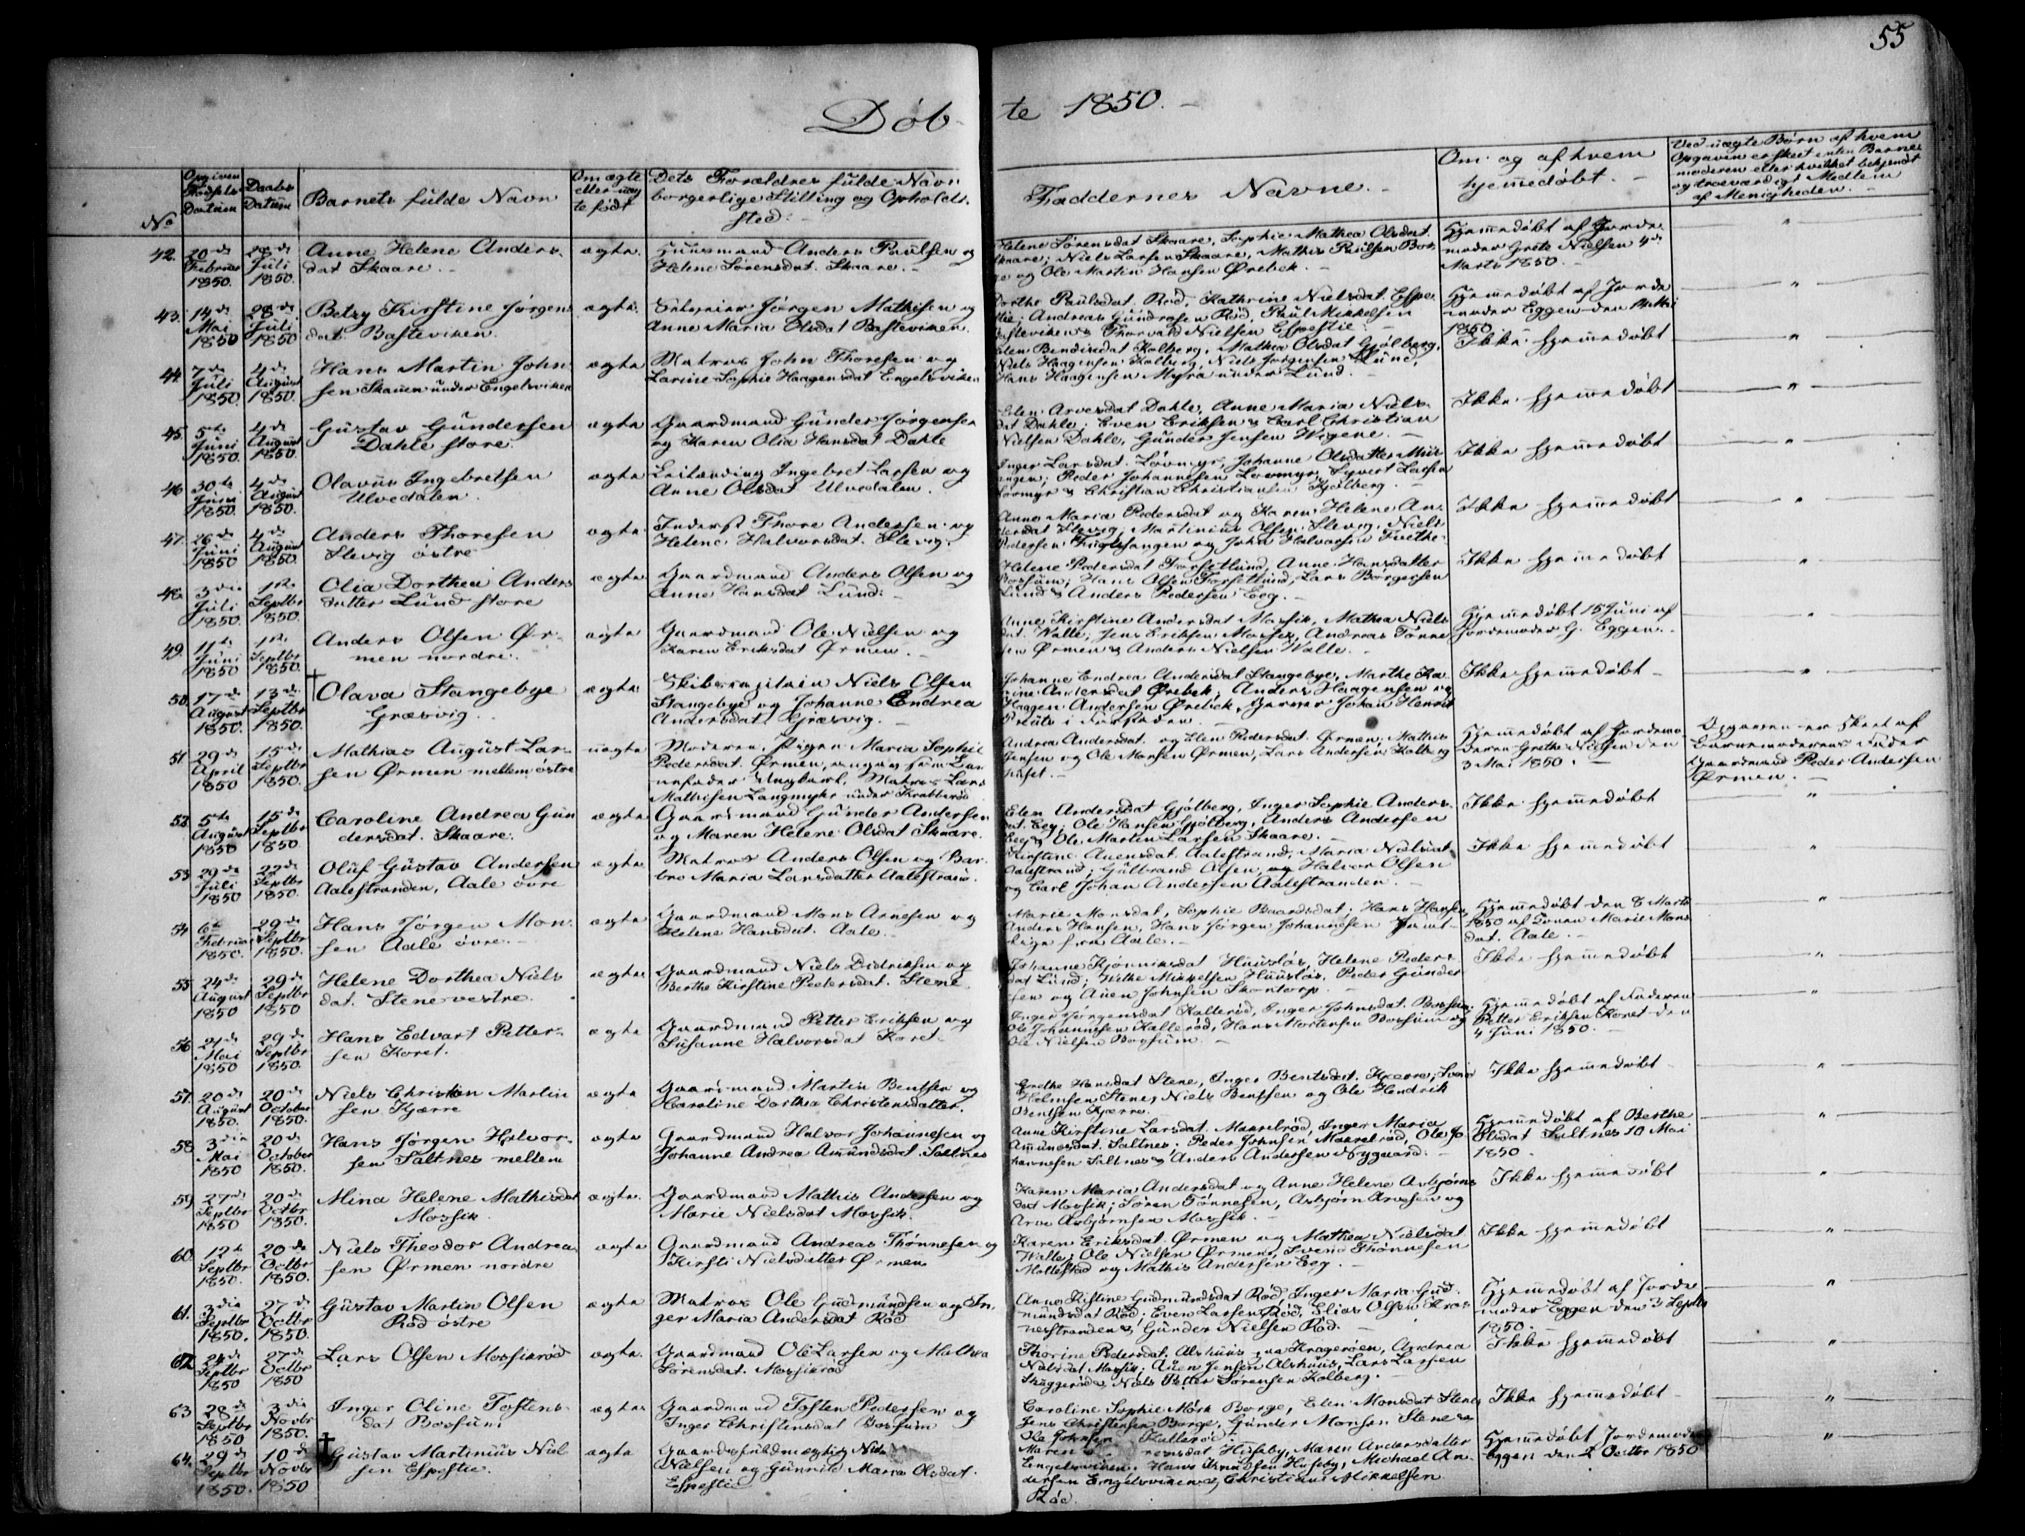 55
Døb-te 1850.
No
Opgiven Fødsels Datum
Daabs Datum
Barnets fulde Navn
Om ægte eller uægte født
Dets Forældres fulde Navn borgerlige Stilling og Opholdssted.
Faddernes Navne.
Om og af hvem hjemmedøbt.
Ved uægte Børn af hvem Opgaven er skeet enten Barnemoderen eller hvilket bekjendt og troværdigt Medlem af Menigheden.
42. 20de Februar 1850. 28de Juli 1850.
Anne Helene Anders-
dat Skaare.
ægte.
Huusmand Anders Paulsen og
Helene Sørensdat. Skaare.
Helene Sørensdat Skaare, Sophie Mathea Olsdat.
Skaare; Niels Larsen Skaare, Mathis Paulsen
og Ole Martin Hansen Ørebek.
Hjemmedøbt af Jorde-
moder Grethe Nielsen 4de
Marts 1850.
43. 14de Mai 1850 28de Juli 1850
Betzy Kirstine Jørgens
dat Basteviken.
ægte.
Selveier Jørgen Mathisen og
Anne Maria Olsdat Basteviken.
Dorthe Paulsdat. Rød, Kathrine Nielsdat. Espe-
stie; Andreas Gundrosen Rød, Paul Mikkelsen
Basteviken & Thorvald Nielsen Espestie.
Hjemmedøbt af Jorde
moder Eggen den
1850.
44. 7de Juli 1850. 4de August 1850.
Hans Martin John-
sen Skauen under Engelsviken
ægte
Matros John Thoresen og
Larine Sophie Haagensdat Engelsviken
Elen Bendixdat Kolberg, Mathea Olsdat Gjølberg,
Niels Haagensen Kolberg, Niels Jørgensen Lund,
Hans Haagensen Myra under Lund.
Ikke hjemmedøbt
45. 5te Juni 1850. 4de August 1850.
Gustav Gundersen
Dahle store.
ægte
Gaardmand Gunder Jørgensen
og Karen Olia Hansdat Dahle
Elen Arvesdat Dahle, Anne Maria Niels-
dat Dahle; Even Eriksen & Carl Christian
Nielsen Dahle, Gunder Jensen Wigene.
Ikke hjemmedøbt
46. 30te Juni 1850. 4de August 1850.
Olavus Ingebretsen
Ulvedalen.
ægte
Leilending Ingebret Larsen og
Anne Olsdat Ulvedalen.
Inger Larsdat. Løvmyr, Johanne Olsdatter
Peder Johannesen Løvmyr, Syvert Larsen
Løvmyr & Christian Christiansen Gjølberg.
Ikke hjemmedøbt
47. 26de Juni 1850 4de August 1850.
Anders Thoresen
Slevig østre
ægte
Inderst Thore Andersen og
Helene Halvorsdat. Slevig.
Anne Maria Pedersdat og Karen Helene An-
dersdat Slevig; Martinius Olsen Slevig, Niels
Pedersen Fuglesangen og John Halvorsen Furthe.
Ikke hjemmedøbt
48. 3die Juli 1850. 1ste Septbr 1850.
Olia Dorthea Anders
datter Lund store
ægte
Gaardmand Anders Olsen og
Anne Hansdat Lund.
Helene Pedersdat Torsetlund, Anne Hansdatter
Bossum; Hans Olsen Torsetlund, Lars Borgersen
Lund & Anders Pedersen Eeg.
Ikke hjemmedøbt
49. 11te Juni 1850 1ste Septbr 1850.
Anders Olsen Ør-
men nordre.
ægte
Gaardmand Ole Nielsen og
Karen Eriksdat Ørmen.
Anne Kirstine Andersdat Mossik, Mathea Niels
dat. Walle; Jens Eriksen Mossik, Andreas Tønne
sen Ørmen & Anders Nielsen Walle.
Hjemmedøbt 15 Juni af
Jordemoder G. Eggen.
50. 17de August 1850. 13de Septbr 1850.
† Olava Stangebye
Græsvig.
ægte
Skibscapitain Niels Olsen
Stangebye og Johanne Endrea
Andersdat. Græsvig.
Johanne Endrea Andersdat Stangebye, Marthe Ka-
trine Andersdat Ørebek; Anders Haagensen og
Haagen Andersen Ørebek, Johan Henrik
Ikke hjemmedøbt
51 29de April 1850 15de Septbr 1850.
Mathias August Lar-
sen Ørmen mellem østre
uægte
Moderen, Pigen Maria Sophie
Pedersdat. Ørmen, angav som Bar-
nefader Ungkarl, Matros Lars
Mathisen Langmyhr under Krabberød
Andrea Andersdat. og Elen Pedersdat. Ørmen, Mathis
Jensen og Ole Monsen Ørmen, Lars Andersen Kolberg
huset.
Hjemmedøbt af Jordemo-
deren Grethe Nielsen den
3 Mai 1850.
Opgaven er skeet af
Barnemoderens Fader
Gaardmand Peder Andersen
Ørmen.
52. 5te August 1850 15de Septbr 1850.
Caroline Andrea Gun
dersdat. Skaare.
ægte
Gaardmand Gunder Andersen
og Maren Helene Olsdat Skaare.
Elen Andersdat Gjølberg, Inger Sophie Anders-
dat. Eeg; Ole Hansen Gjølberg, Anders Andersen
Eeg & Ole Martin Larsen Skaare.
Ikke hjemmedøbt
53 29de Juli 1850 22de Septbr 1850.
Oluf Gustav Andersen
Aalestranden, Aale øvre
ægte
Matros Anders Olsen og Bar-
bro Maria Larsdatter Aalestrand.
Kirstine Auensdat. Aalestrand, Maria Nielsdat
Aalestrand; Gulbrand Olsen, og Halvor Olsen
og Carl Johan Andersen Aalestranden.
Ikke hjemmedøbt
54 6te Februar 1850. 29de Septbr 1850.
Hans Jørgen Mon-
sen Aale øvre.
ægte
Gaardmand Mons Arnesen og
Helene Hansdat. Aale.
Marie Monsdat, Sophie Baardsdat. Hans Hansen
Anders Hansen, Hans Jørgen Johannesen samt-
lige fra Aale.
Hjemmedøbt den 8 Marts
1850 af Konen Marie Mons
dat. Aale.
55 24de August 1850 29de Septbr 1850
Helene Dorthea Niels
dat. Stene vestre.
ægte
Gaardmand Niels Didriksen og
Berthe Kirstine Pedersdat. Stene
Johanne Kjønniksdat Huusløs, Helene Peders-
dat Lund; Wilhe Mikkelsen Huusløs, Peder Gunder
sen og Auen Johnsen Skontorp.
Ikke hjemmedøbt
56 21de Mai 1850 29de Septbr 1850
Hans Edvart Petter-
sen Koret.
ægte
Gaardmand Petter Eriksen og
Susanne Halvorsdat Koret.
Inger Jørgensdat Kallerød, Inger Johnsdat. Bossum,
Ole Johannesen Kallerød, Hans Mortensen Bossum og
Ole Nielsen Bossum.
Hjemmedøbt af Faderen
Petter Eriksen Koret den
4 Juni 1850.
57. 20de August 1850. 20de October 1850.
Niels Christian Martin
sen Kjærre
ægte
Gaardmand Martin Bentsen og
Caroline Dorthea Christensdatter.
Grethe Hansdat Stene, Inger Bentsdat. Kjærre; Svend
Holmsen Stene, Niels Bentsen og Ole Hendrik
Bentsen Kjærre.
Ikke hjemmedøbt
58. 3die Mai 1850 20de October 1850.
Hans Jørgen Halvor-
sen Saltnes mellem
ægte
Gaardmand Halvor Johannesen og
Johanne Andrea Amundsdat. Saltnes
Anne Kirstine Larsdat. Maxelrød, Inger Maria
Amundsdat. Saltnes. Peder Johnsen Maxelrød, Ole Jo-
hannesen Saltnes & Anders Andersen Nygaard.
Hjemmedøbt af Berthe
Olsdat Saltnes 10 Mai
1850.
59 27de Septbr 1850 20de Octbr 1850.
Mina Helene Mathisdat
Mossik.
ægte.
Gaardmand Mathis Andersen og
Marie Nielsdat Mossik.
Karen Maria Andersdat og Anne Helene Asbjørns
dat Mossik; Søren Tønnesen, Asbjørn Arvesen og
Arve Asbjørnsen Mossik.
Ikke hjemmedøbt
60. 12te Septbr 1850. 20de Octbr 1850.
Niels Theodor Andrea
sen Ørmen nordre
ægte
Gaardmand Andreas Thønnesen og
Kirsti Nielsdatter Ørmen
Karen Eriksdat. Ørmen og Mathea Nielsdat
Walle; Ole Nielsen Ørmen, Svend Thønnesen
Mollestad og Mathis Andersen Eeg.
Ikke hjemmedøbt
61. 3die Septbr 1850. 27de Octbr 1850.
Gustav Martin Olsen
Rød østre
ægte
Matros Ole Gudmundsen og In-
ger Maria Andersdat Rød
Anne Kistine Gudmundsdat Rød, Inger Maria Gud-
mundsdat Rød; Even Larsen Rød, Elias Olsen Kra-
nesstranden & Gunder Nielsen Rød.
Hjemmedøbt af Jorde
moder Eggen den Septbr
1850.
62 24de Septbr 1850 27de Octbr 1850
Lars Olsen Mossikrød
ægte.
Gaardmand Ole Larsen og Mathea
Sørensdat. Mossikrød
Thorine Pedersdat. Alshuus paa Kragerøen, Andrea
Nielsdat Mossik; Auen Jensen Alshuus, Lars Larsen
Skuggerød & Niels Petter Sørensen Kolberg.
Ikke hjemmedøbt
63 28de Septbr 1850 3die Novbr 1850.
Inger Oline Tostens-
dat Bossum
ægte
Gaardmand Tosten Pedersen og
Inger Christensdat Bossum
Caroline Sophie Mørk Borge, Elen Monsdat Stene
Jens Christensen Borge, Gunder Monsen Stene &
Ole Johnsen Kallerød.
Ikke hjemmedøbt
64. 29de Septbr 1850. 10de Novbr 1850
† Gustav Martinius Niel
sen Espestie.
ægte
Gaardsfuldmægtig Niels
Nielsen og Gunnild Maria Olsdat.
Espestie
Maren Huseby, Maren Andersdatter
Engelsviken. Hans Knudsen Huseby, Michael An-
dersen Engelsviken & Christian Mikkelsen
Røe.
Hjemmedøbt Jordemoder
Eggen den 2 Octbr 1850